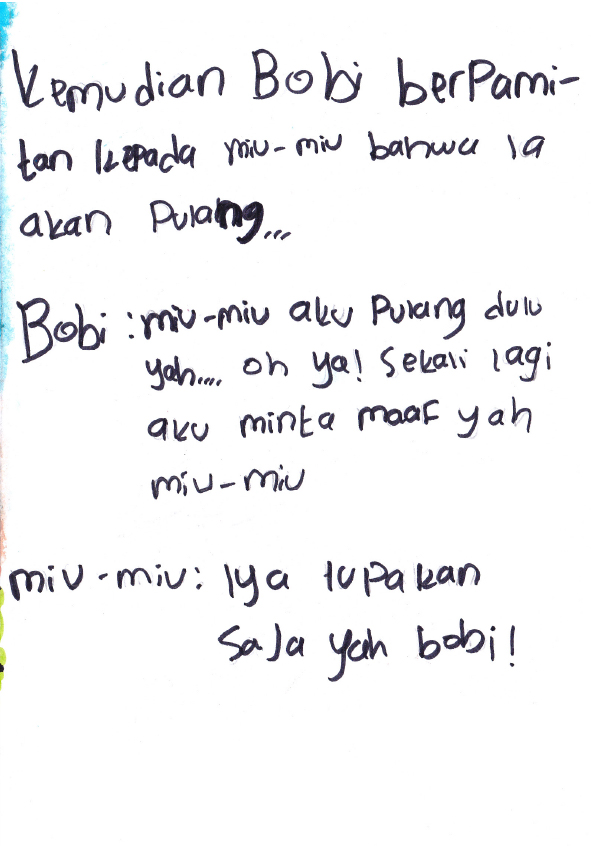 Kemudian Bobi berPami-
tan kepada miu-miu bahwa ia
akan Pulang...
Bobi : miu-miu aku Pulang dulu
yah.... oh ya! Sekali lagi
aku minta maaf yah
miu-miu
miu-miu: Iya lupakan
SaJa yah bobi!